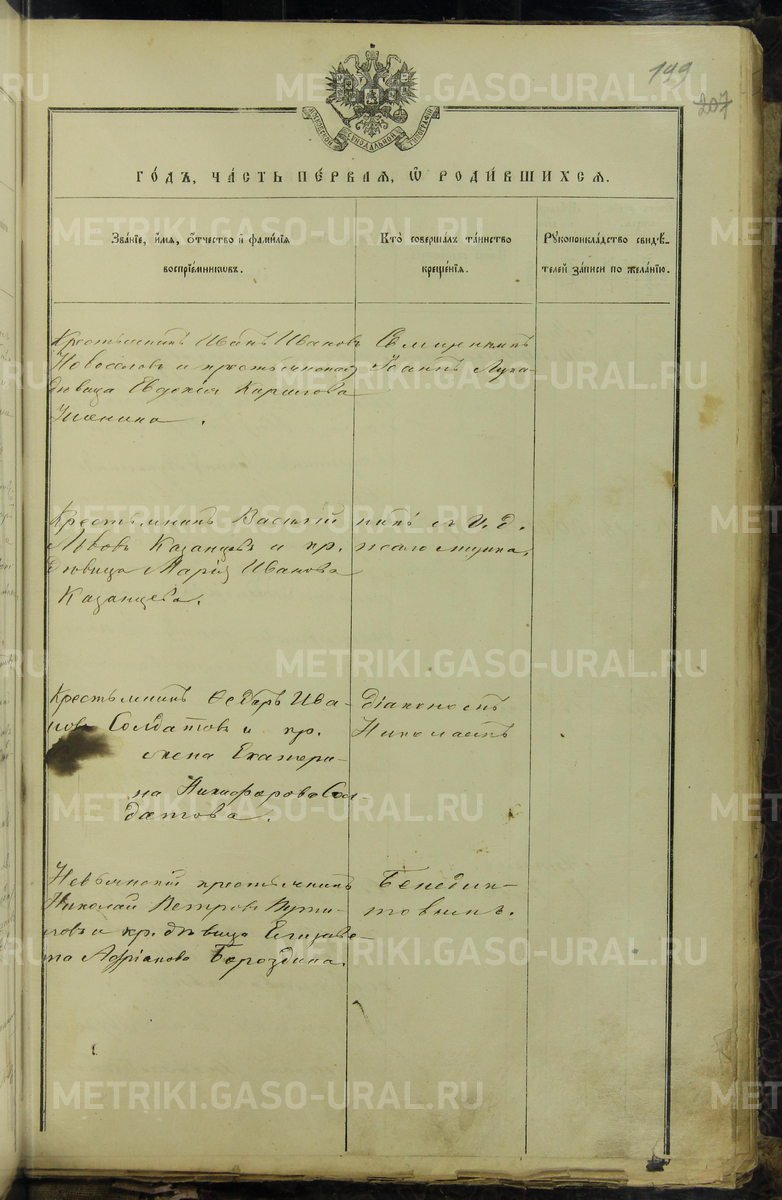 149
207
МОСКОВСКОЙ СѴНОДАЛЬНОЙ ТИПОГРАФІИ
ГО́ДЪ, ЧА́СТЬ ПЕ́РВАѦ, Ѽ РОДИ́ВШИХСѦ.
Зва́нїе, и́мѧ, ѻ҆́тчество и҆ фами́лїѧ
воспрїе́мникѡвъ.
Кто̀ соверша́лъ та́инство
креще́нїѧ.
Рꙋкоприкла́дство свидѣ́-
телей за́писи по жела́нїю.
Крестьянинъ Иванъ Ивановъ
Новоселовъ и крестьянская
дѣвица Евдокія
Священникъ
Іоаннъ Лука-
Крестьянинъ Василій
Львовъ Казанцевъ и кр.
дѣвица Марія Иванова
Казанцева.
нинъ съ и. д.
псаломщика
Крестьянинъ Ѳедоръ Ива-
новъ Солдатовъ и кр.
жена Екатери-
на Никифорова Сол
датова.
діакономъ
Николаемъ
Невьянскій крестьянинъ
Николай Петровъ
и кр. дѣвица Елизаве-
та Адріанова Бороздина.
Бенедик-
товымъ.
METRIKI.GASO-URAL.RU